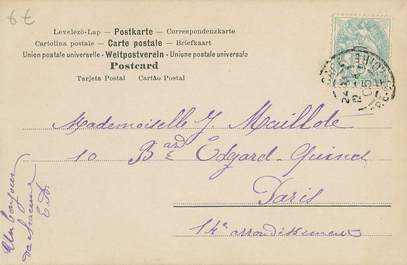 79
Levelezö-Lap — Postkarte — Correspondenzkarte
Cartolina postale — Carte postale — Briefkaart
Union postale universelle — Weltpostverein — Unione postale universale
Postcard
Tarjeta Postal Cartão Postal
Mademoiselle J. Maillote
10 Bard Edgard-Quinet
Paris
14e arrondissement